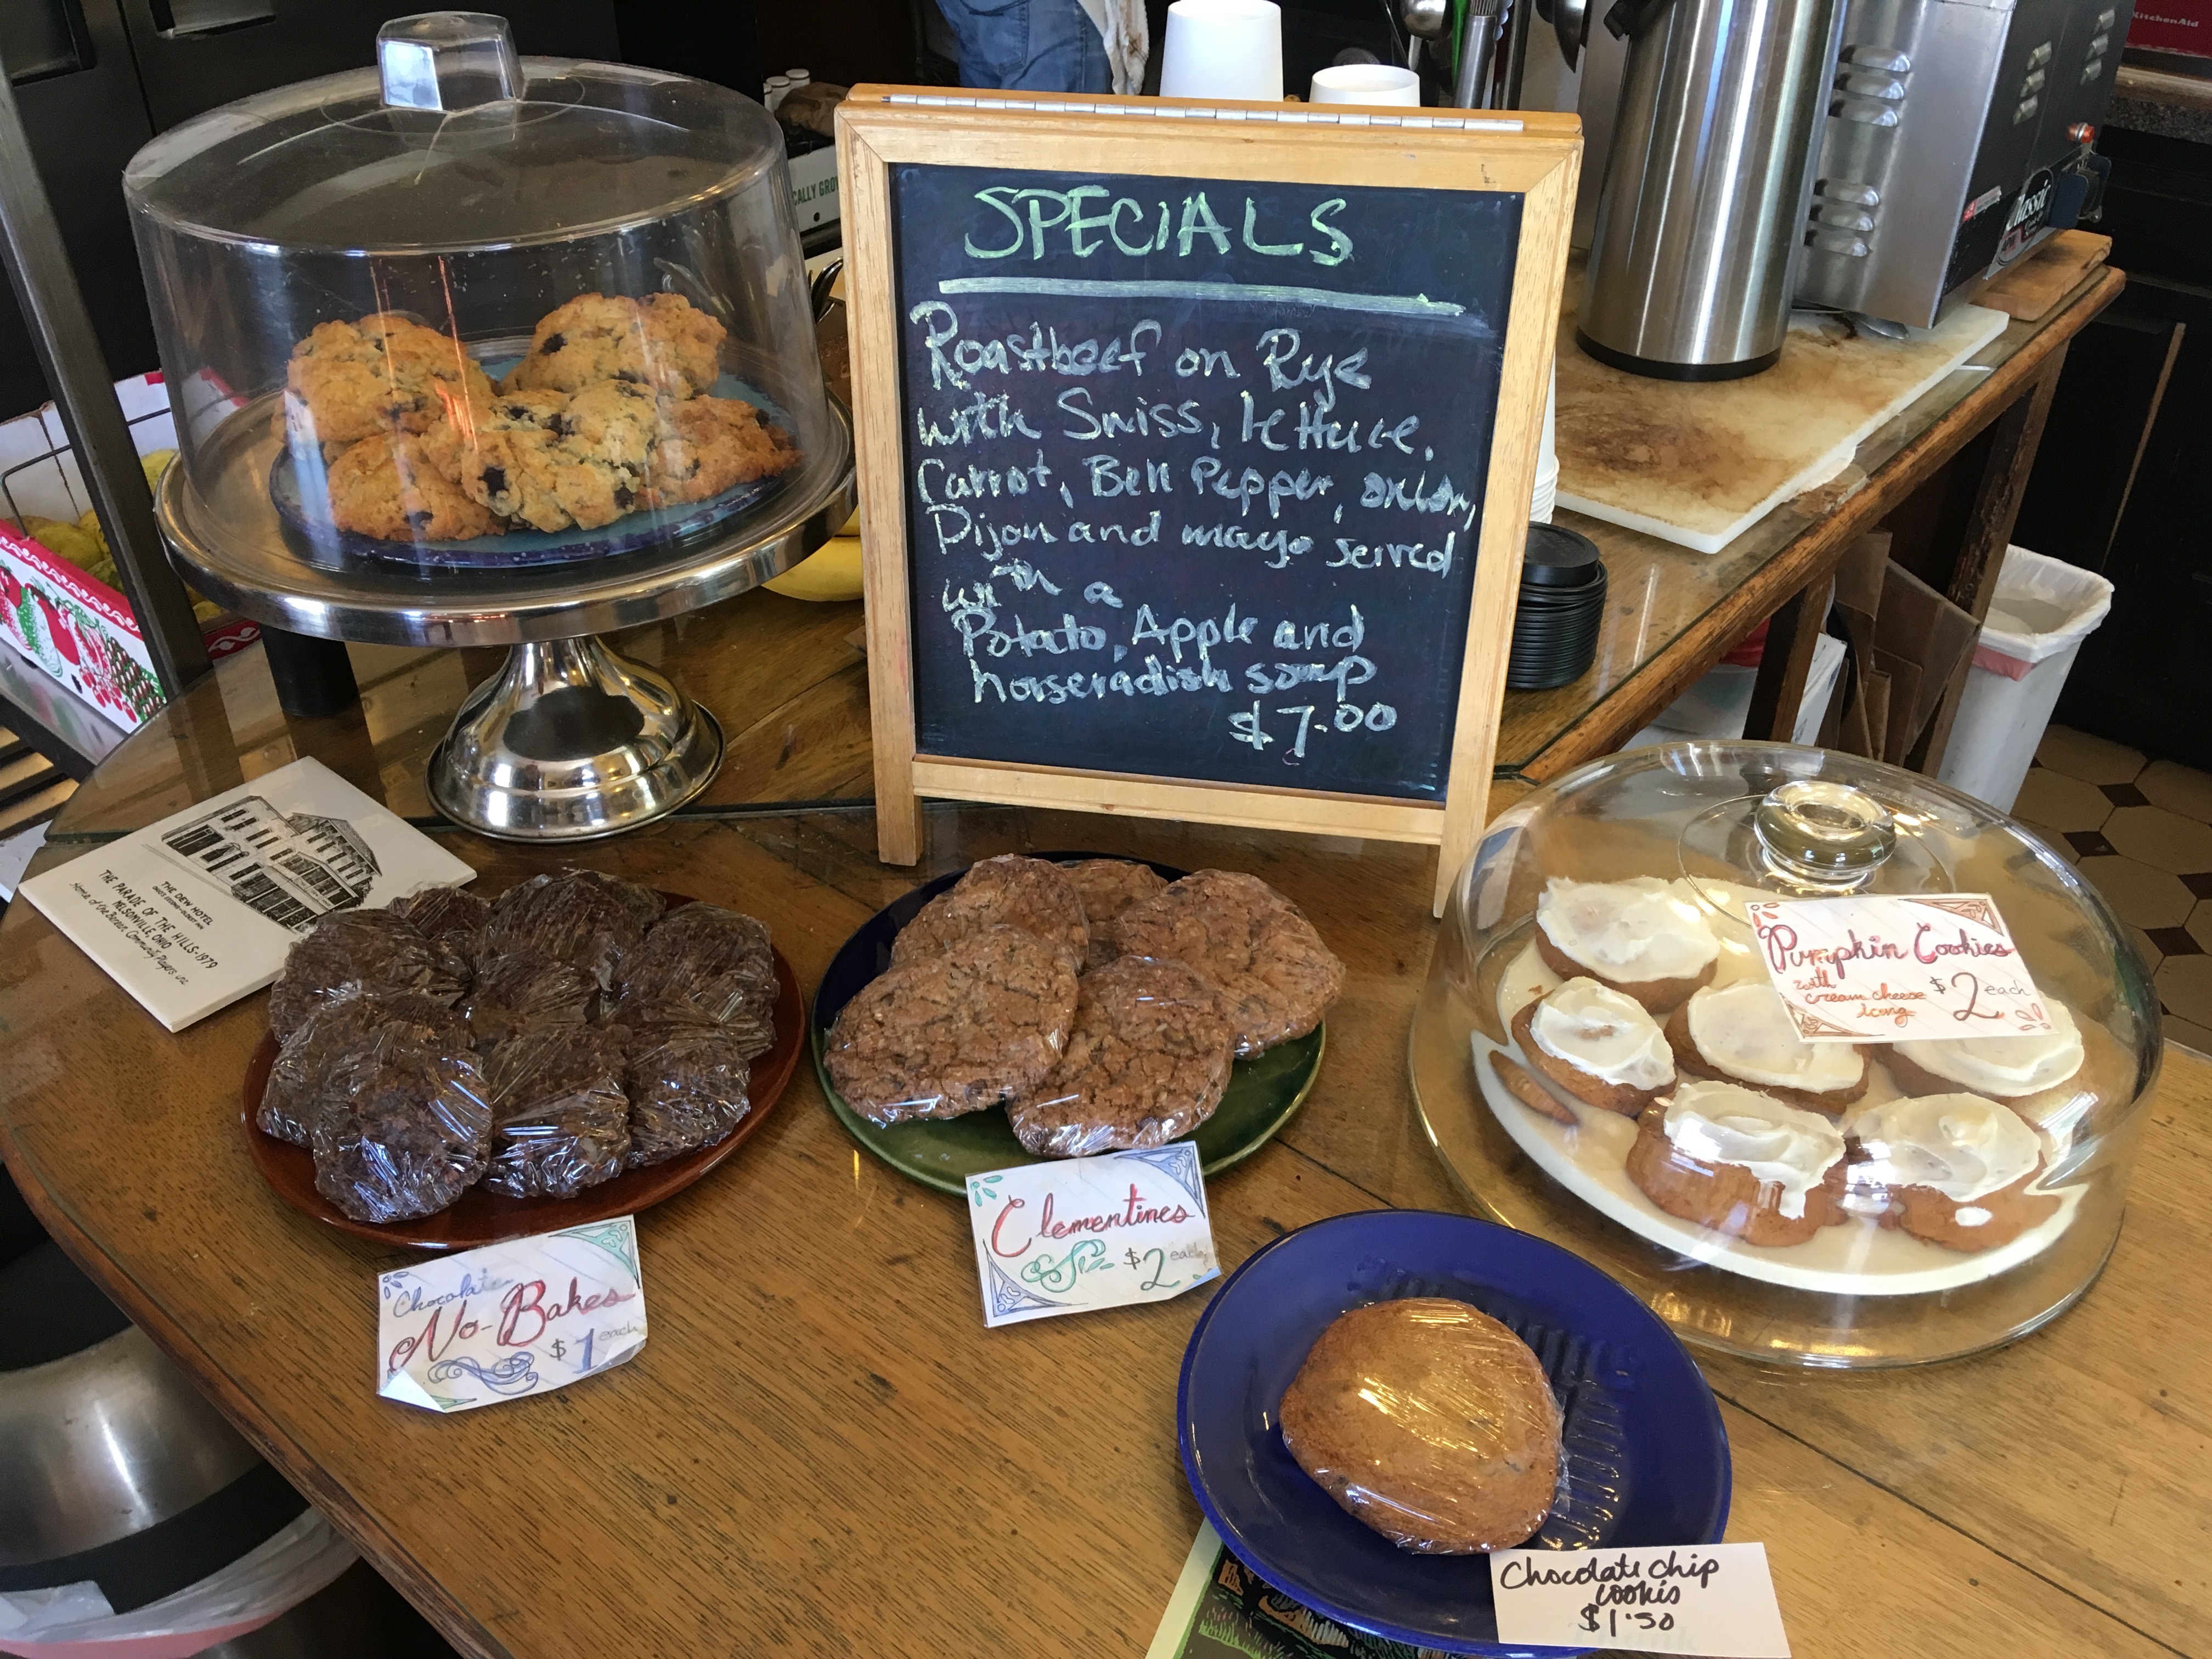 KitchenAid
CALLY GROW
Classic
SPECIALS
Roastbeef on Rye
with Swiss, lettuce,
Carrot, Bell Pepper, onion,
Dijon and mayo served
with a
Potato, Apple and
horseradish soup
$7.00
THE DEW HOTEL
THE PARADE OF THE HILLS-1979
NELSONVILLE, OHIO
Home of the Community Players
Pumpkin Cookies
with
cream cheese
Icing
$2 each
Clementines
$2 each
Chocolate
No-Bakes
$1 each
Chocolate chip
cookis
$1.50